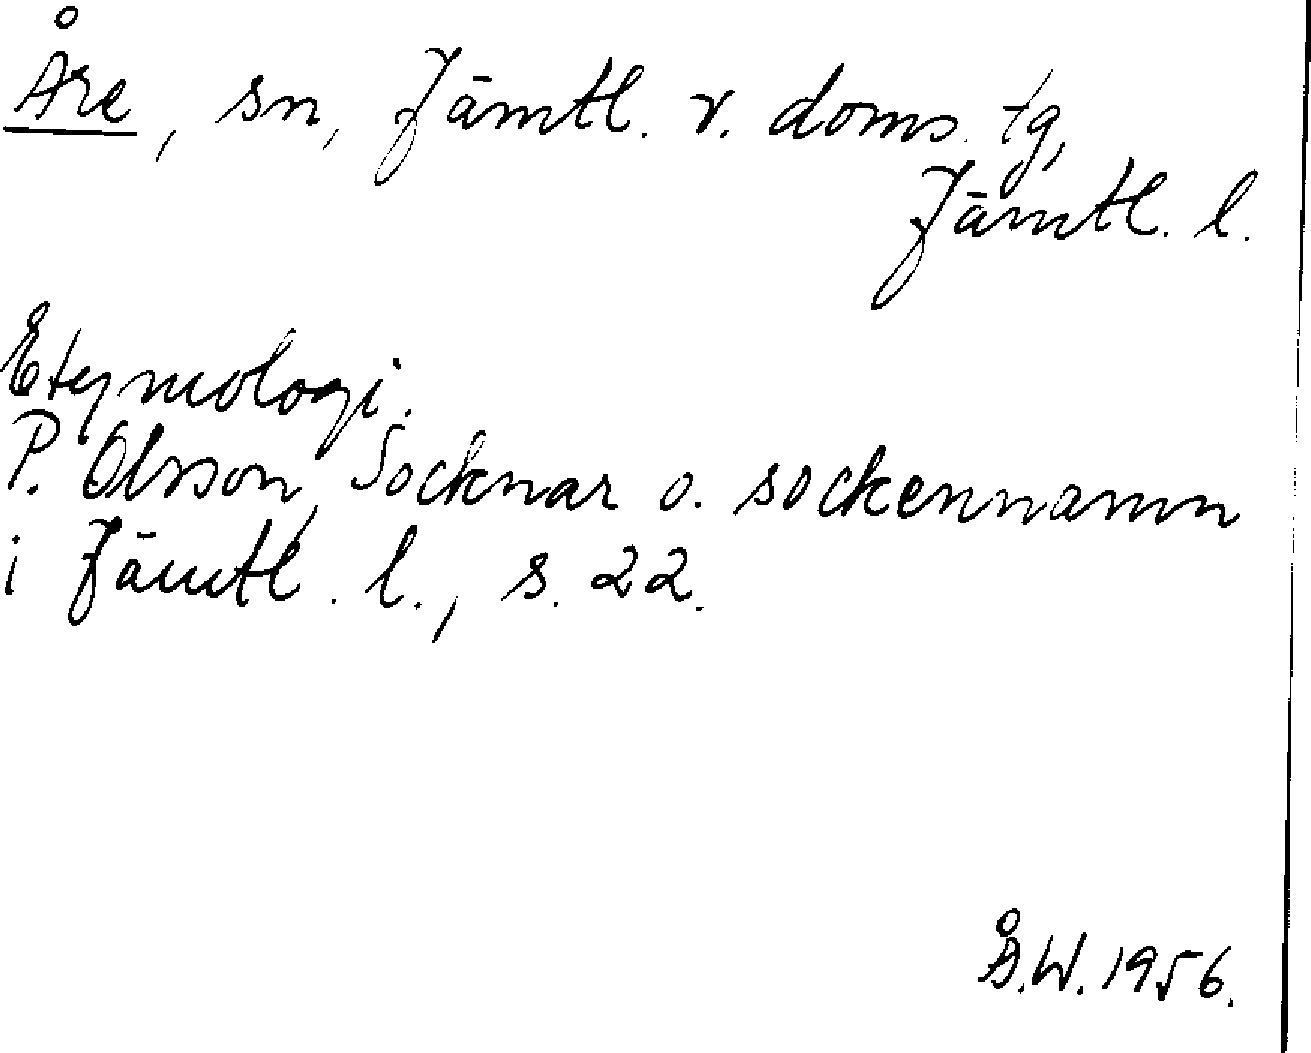 Åre, sn, Jämtl. v. doms. tg,
Jämtl. l.
Etymologi.
P. Olsson, Socknar o. sockennamn
i Jämtl. l., s. 22.
Å.W. 1956.